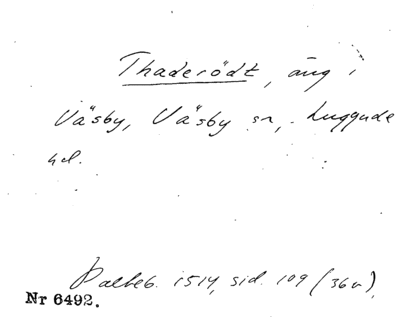 Thaderödt, äng i
Väsby, Väsby sn, Luggude
hd.
Palteb. 1514, sid. 109 (36v),
Nr 6492.